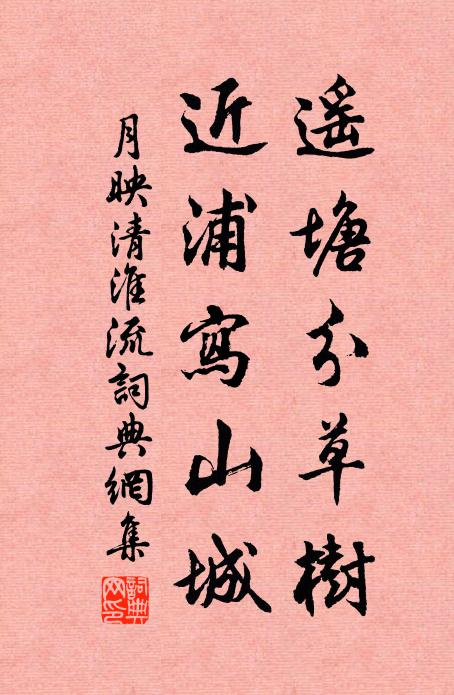 遥塘分草樹
近浦寫山城
月映清淮流詞典網集
詞典網印